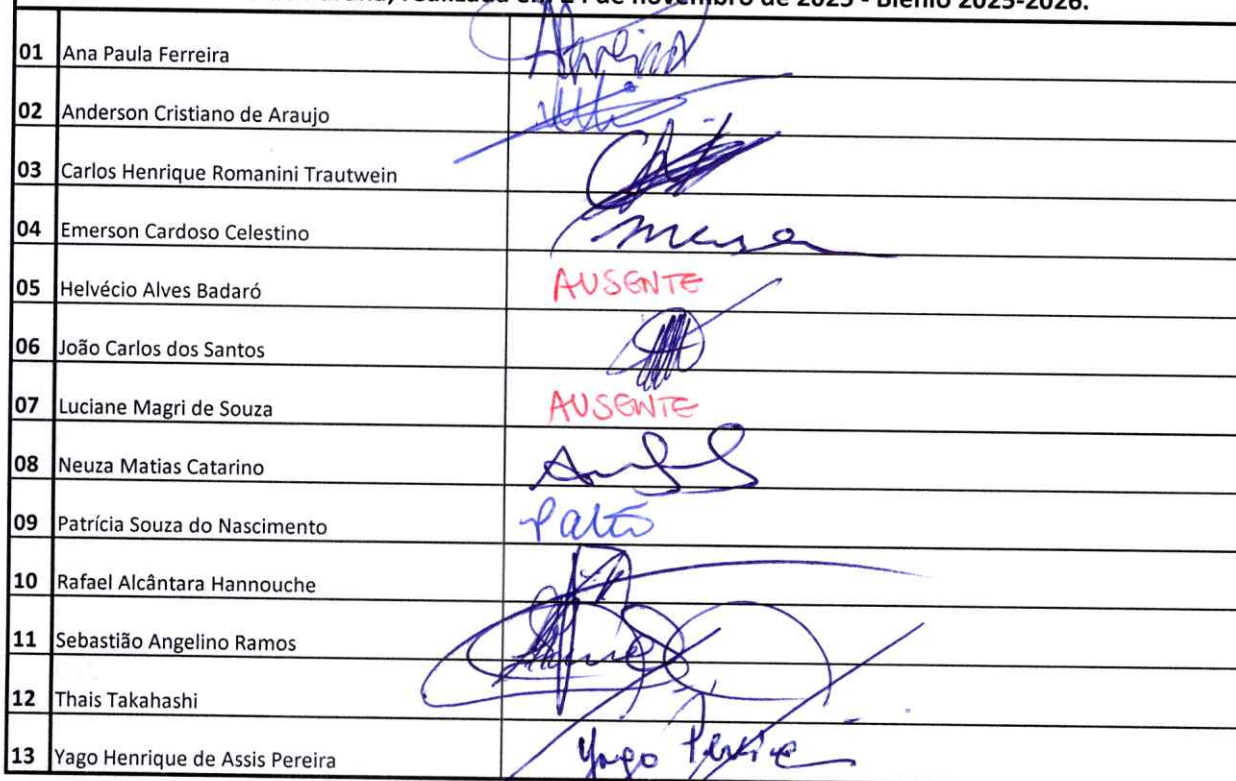 realizada em 24 de novembro de 2025 - Biênio 2025-2026.
01 Ana Paula Ferreira
02 Anderson Cristiano de Araujo
03 Carlos Henrique Romanini Trautwein
04 Emerson Cardoso Celestino
05 Helvécio Alves Badaró AUSENTE
06 João Carlos dos Santos
07 Luciane Magri de Souza AUSENTE
08 Neuza Matias Catarino
09 Patrícia Souza do Nascimento
10 Rafael Alcântara Hannouche
11 Sebastião Angelino Ramos
12 Thais Takahashi
13 Yago Henrique de Assis Pereira Yago Pereira